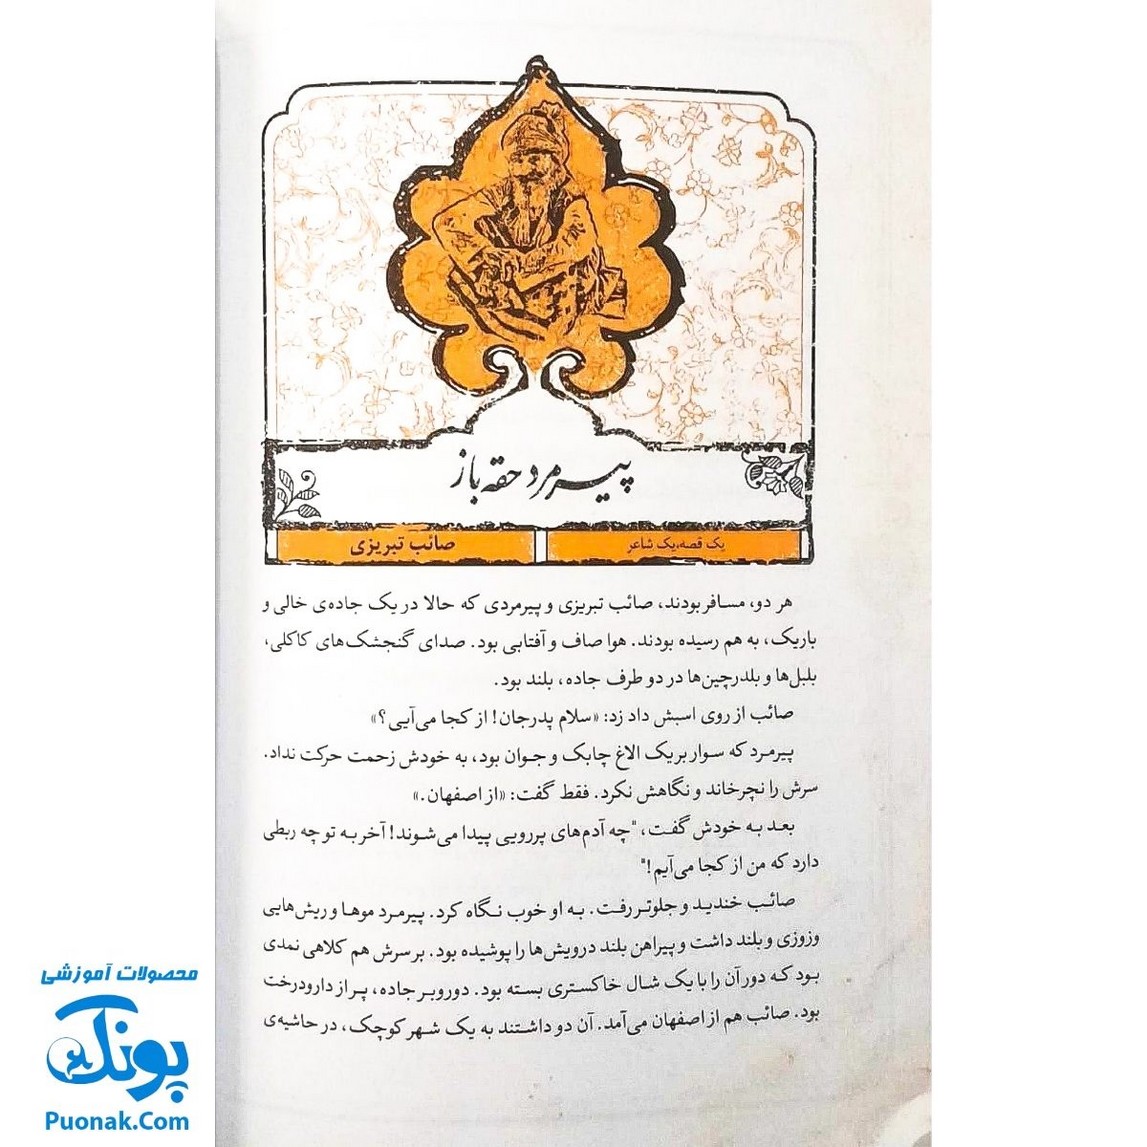 پیرمرد حقه باز
یک قصه، یک شاعر
صائب تبریزی
هر دو، مسافر بودند، صائب تبریزی و پیرمردی که حالا در یک جاده‌ی خالی و
باریک، به هم رسیده بودند. هوا صاف و آفتابی بود. صدای گنجشک‌های کاکلی،
بلبل‌ها و بلدرچین‌ها در دو طرف جاده، بلند بود.
صائب از روی اسبش داد زد: «سلام پدرجان! از کجا می‌آیی؟»
پیرمرد که سوار بر یک الاغ چابک و جوان بود، به خودش زحمت حرکت نداد.
سرش را نچرخاند و نگاهش نکرد. فقط گفت: «از اصفهان.»
بعد به خودش گفت، "چه آدم‌های پررویی پیدا می‌شوند! آخر به تو چه ربطی
دارد که من از کجا می‌آیم!"
صائب خندید و جلوتر رفت. به او خوب نگاه کرد. پیرمرد موها و ریش‌هایی
وزوزی و بلند داشت و پیراهن بلند درویش‌ها را پوشیده بود. بر سرش هم کلاهی نمدی
بود که دور آن را با یک شال خاکستری بسته بود. دور و بر جاده، پر از دارودرخت
بود. صائب هم از اصفهان می‌آمد. آن دو داشتند به یک شهر کوچک، در حاشیه‌ی
محصولات آموزشی
پونک
Puonak.Com